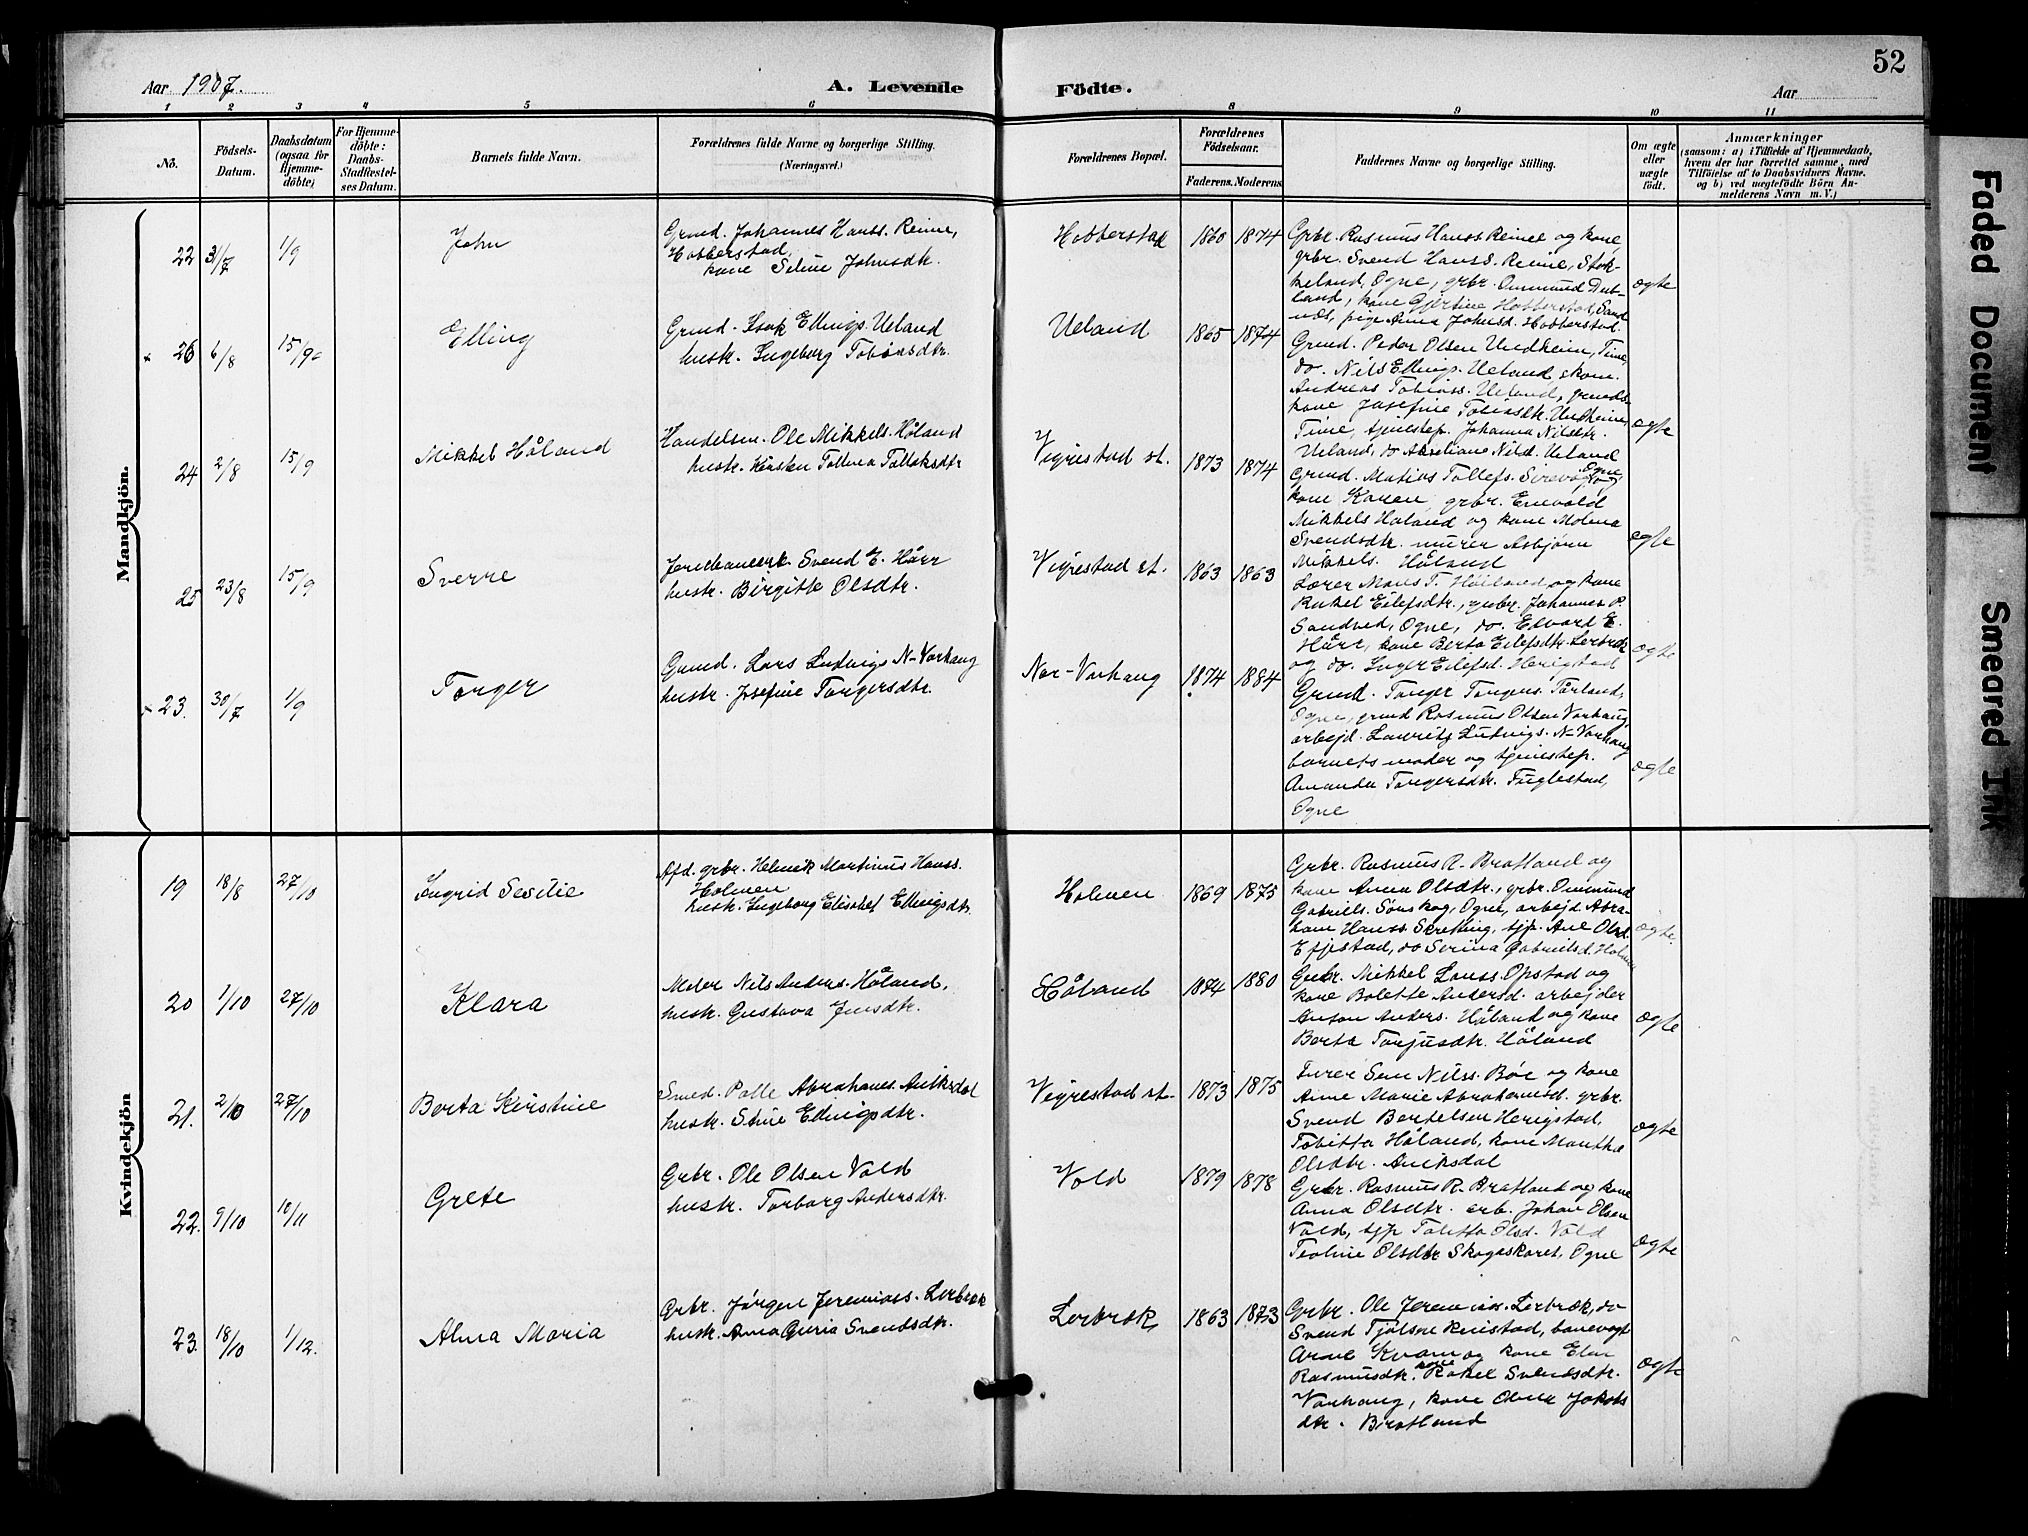 52
Aar 1907.
A. Levende Födte.
Aar
1 2 3 4 5 6 8 9 10 11
Nö.
Födsels-Datum.
Daabsdatum (ogsaa for Hjemme-döbte)
For Hjemme-döbte: Daabs-Stadfæstel-ses Datum.
Barnets fulde Navn.
Forældrenes fulde Navne og borgerlige Stilling.
(Næringsvei.)
Forældrenes Bopæl.
Forældrenes Födselsaar.
Faderens. Moderens.
Faddernes Navne og borgerlige Stilling.
Om ægte eller uægte födt.
Anmærkninger
(saasom: a) i Tilfælde af Hjemmedaab,
hvem der har forrettet samme, med
Tilföielse af to Daabsvidners Navne.
og b) ved uægtefödte Börn An-
melderens Navn m. V.)
Mandkjön.
22 31/7 1/9
John
Grmd. Johannes Hanss. Reime,
Hobberstad,
kone Seline Johnsdtr.
Hobberstad 1860 1874
Grbr. Rasmus Hanss Reime og kone
grbr. Svend Hanss. Reime, Stok-
keland, Ogne, grbr. Ommund Dub-
land, kone Gjertine Hobberstad, Sand
næs, pige Anna Johnsd. Hobberstad.
ægte
26 6/8 15/9
Elling
Grmd. Isak Ellings. Ueland
hustr. Ingeborg Tobiasdtr.
Ueland 1865 1874
Grmd. Peder Olsen Undheim, Time,
do. Nils Ellings. Ueland, skom.
Andreas Tobiass. Ueland, grmds.
kone Josefine Tobiasdtr. Undheim,
Time, tjenestep. Johanna Nilsdtr.
Ueland, do Abeliane Nilsd. Ueland
ægte
24 2/8 15/9
Mikkel Håland
Handelsm. Ole Mikkels. Håland
hustr. Kirsten Tolena Tollaksdtr
Vigrestad st. 1873 1874
Grmd. Matias Tollefs. Sirevåg, Ogne, og
kone Karen, grbr. Enevald
Mikkels Håland og kone Molena
Svendsdtr. murer Asbjörn
Mikkels. Håland
ægte
25 23/8 15/9
Sverre
Jernbanearb. Svend E. Hårr
hustr. Birgitte Olsdtr.
Vigrestad st. 1863 1863
Lærer Mons T. Höiland og kone
Rakel Eilefsdtr., grbr. Johannes P.
Sandved, Ogne, do. Edvard E.
Hårr, kone Berta Eilefsdtr. Lerbræk
og do. Inger Eilefsd. Herigstad
ægte
23. 30/7 1/9
Torger
Grmd. Lars Ludvigs N-Varhaug
hustr. Josefine Torgersdtr.
Nor-Varhaug 1874 1884
Grmd. Torger Torgers. Tårland,
Ogne, grmd Rasmus Olsen Varhaug,
arbejd. Lauritz Ludvigs. N-Varhaug
barnets moder og tjenestep.
Amanda Torgersdtr. Fuglestad,
Ogne
ægte
Kvindekjön
19 18/8 27/10
Ingrid Sesilie
Afd. grbr. Helmik Martinus Hanss.
Holmen
hustr. Ingeborg Elisabet Ellingsdtr.
Holmen 1869 1875
Grbr. Rasmus R. Bratland og
kone Anna Olsdtr., grbr. Ommund
Gabriels. Sönskog, Ogne, arbejd. Abra-
ham Hanss. Skretting, tjp. Ane Olsd.
Efjestad, do Serina Gabrielsd. Holmen
ægte.
20 1/10 27/10
Klara
Maler Nils Anders. Håland,
hustr. Gustava Jensdtr.
Håland 1874 1880
Grbr. Mikkel Larss. Opstad og
kone Bolette Andersd. arbejder
Anton Anders. Håland og kone
Berta Torjusdtr. Håland
ægte
21. 2/10 27/10
Berta Kirstine
Smed. Palle Abrahams. Aniksdal
hustr. Stine Ellingsdtr.
Vigrestad st. 1873 1875
Sven Nilss. Böe og kone
Anne Marie Abrahamsd. grbr.
Svend Bertelsen Herigstad,
Tobitta Håland, kone Martha
Olsdtr. Aniksdal
ægte
22. 9/10 10/11
Grete
Grbr. Ole Olsen Vold
hustr. Torborg Andersdtr.
Vold 1879 1878
Grbr. Rasmus R. Bratland og kone
Anna Olsdtr. arb. Johan Olsen
Vold, tjp Taletta Olsd. Vold
Teoline Olsdtr Skogaskaret, Ogne
ægte
23. 18/10 1/12.
Alma Maria
Grbr. Jörgen Jeremiass. Lerbræk
hustr. Anna Guria Svendsdtr.
Lerbræk 1863 1873
Grbr. Ole Jeremias. Lerbræk, do
Svend Tjölsen banevogt
Arne Kvam og kone Elen
Rasmusdtr. kone Rakel Svendsdtr.
Varhaug, kone Jakobs
dtr. Bratland
ægte
Faded Document
Smeared Ink